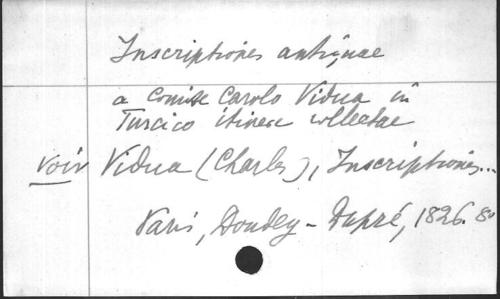 Inscriptiones antiquae
a comite Carolo Vidua in
Turcico itinere collectae
voir Vidua (Charles), Inscriptiones...
Paris, Dondey-Dupré, 1826. 8º